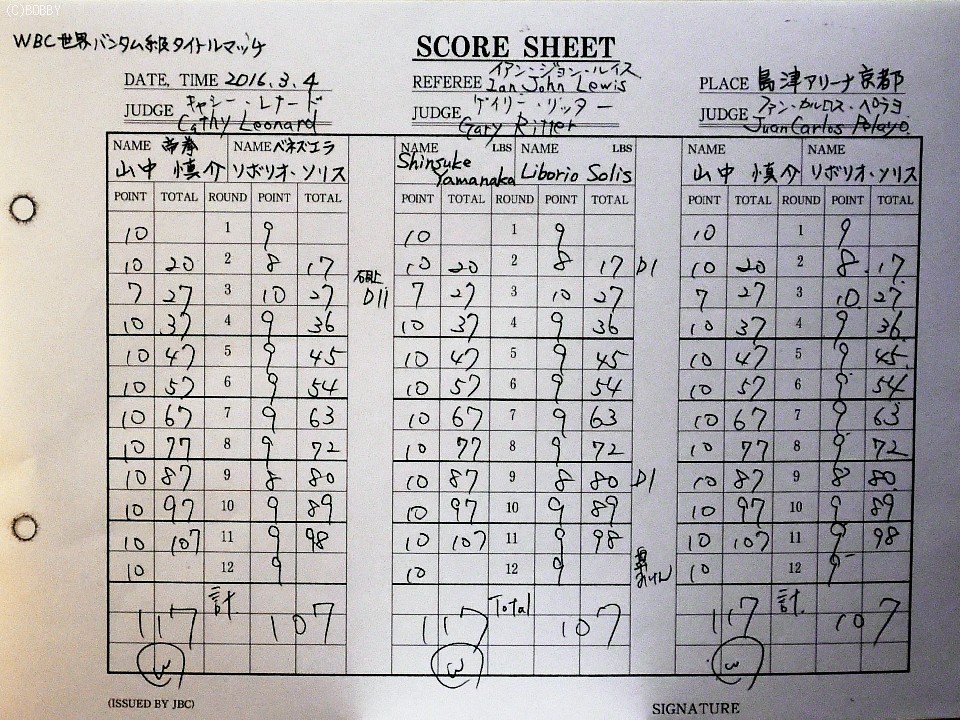 (C)BOBBY
WBC世界バンタム級タイトルマッチ
SCORE SHEET
DATE, TIME 2016.3.4
REFEREE イアン・ジョン・ルイス
Ian John Lewis
PLACE 島津アリーナ京都
JUDGE キャシー・レナード
Cathy Leonard
JUDGE ゲイリー・リッター
Gary Ritter
JUDGE ファン・カルロス・ペラヨ
Juan Carlos Pelayo
NAME 帝拳 NAME ベネズエラ NAME LBS NAME LBS NAME NAME
山中 慎介 リボリオ・ソリス Shinsuke Yamanaka Liborio Solis 山中 慎介 リボリオ・ソリス
POINT TOTAL ROUND POINT TOTAL POINT TOTAL ROUND POINT TOTAL POINT TOTAL ROUND POINT TOTAL
10 1 9 10 1 9 10 1 9
10 20 2 8 17 10 20 2 8 17 D1 10 20 2 8 17
7 27 3 10 27 D11 7 27 3 10 27 7 27 3 10 27
10 37 4 9 36 10 37 4 9 36 10 37 4 9 36
10 47 5 9 45 10 47 5 9 45 10 47 5 9 45
10 57 6 9 54 10 57 6 9 54 10 57 6 9 54
10 67 7 9 63 10 67 7 9 63 10 67 7 9 63
10 77 8 9 72 10 77 8 9 72 10 77 8 9 72
10 87 9 8 80 10 87 9 8 80 D1 10 87 9 8 80
10 97 10 9 89 10 97 10 9 89 10 97 10 9 89
10 107 11 9 98 10 107 11 9 98 10 107 11 9 98
10 12 9 10 12 9 10 12 9
計 Total 計
117 107 117 107 117 107
W W W
(ISSUED BY JBC)
SIGNATURE